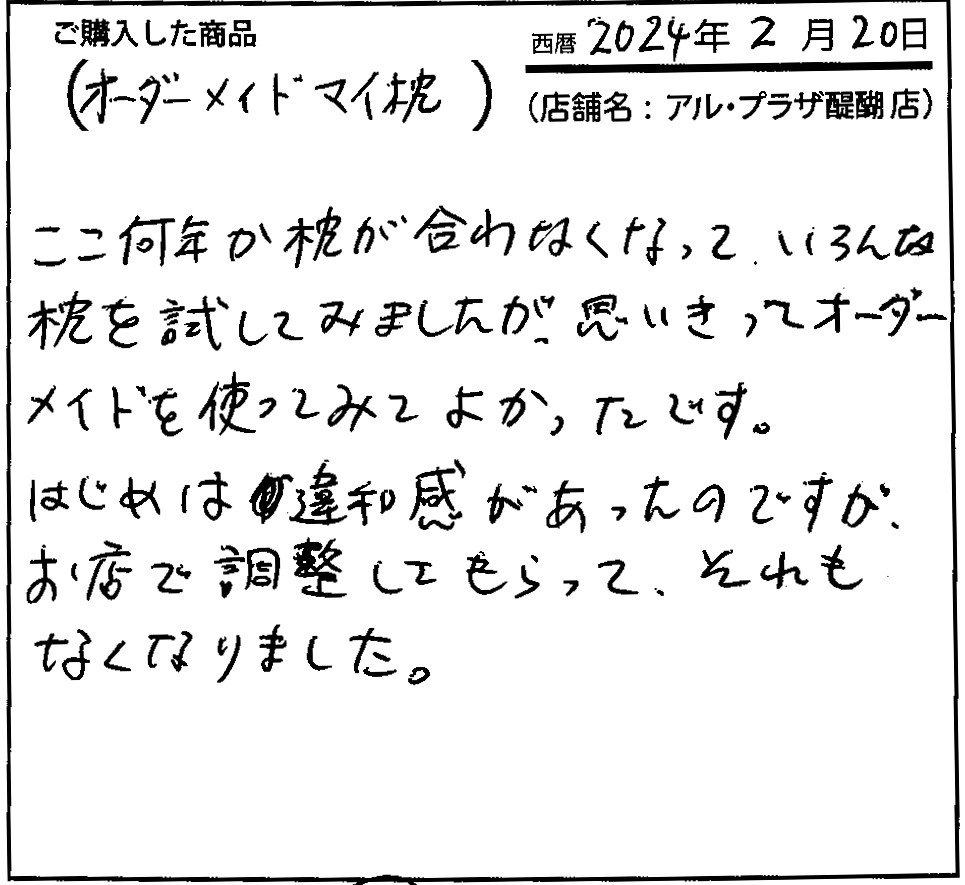 ご購入した商品
西暦 2024年 2月 20日
(オーダーメイドマイ枕)
(店舗名：アル・プラザ醍醐店)
ここ何年か枕が合わなくなって、いろんな
枕を試してみましたが、思いきってオーダー
メイドを使ってみてよかったです。
はじめは違和感があったのですが、
お店で調整してもらって、それも
なくなりました。